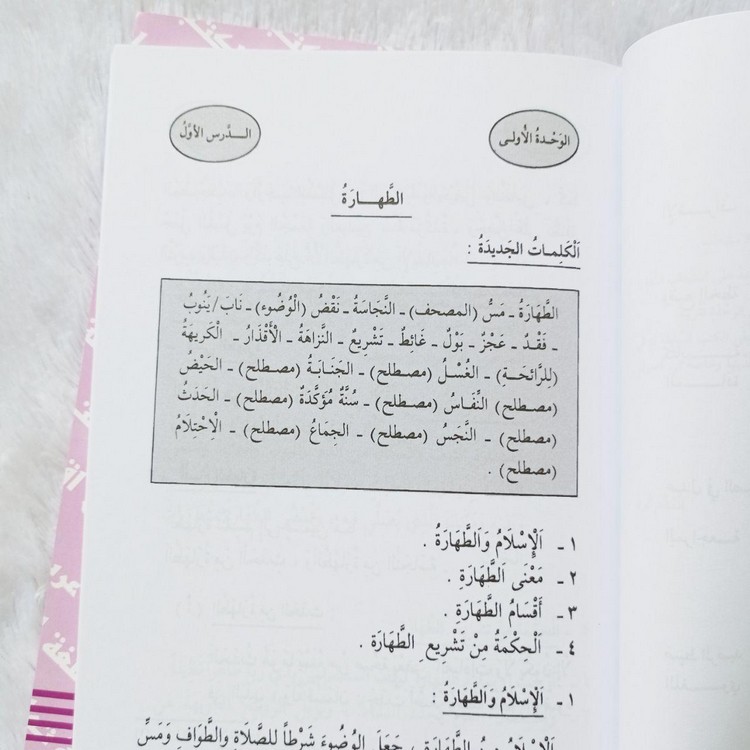 الوَحْدَةُ الأُولى
الـدَّرس الأوَّلُ
الطَّهـــارَةُ
اَلْكَلِمـاتُ الجَديدَةُ :
الطَّهَارَةُ ـ مَسُّ (المصحف) ـ النَّجَاسَةُ ـ نَقْضُ (الْوُضُوءِ) ـ نَابَ/يَنُوبُ
ـ فَقْـدُ ـ عَجْزٌ ـ بَوْلٌ ـ غَائِطٌ ـ تَشْرِيع ـ النَّزَاهَةُ ـ الْأَقْذَارُ ـ الْكَريهَةُ
(لِلرَّائِحَـةِ) ـ الغُسْلُ (مصـطلح) ـ الجَنَابَـةُ (مصـطلح) ـ الحَيْضُ
(مصـطلح) النِّفَاسُ (مصـطلح) ـ سُنَّةٌ مُؤَكَّدَةٌ (مصـطلح) ـ الحَدَثُ
(مصطلح) ـ النَّجَسُ (مصطلح) ـ الجِمَاعُ (مصطلح) ـ الْاِحْتِلَامُ
(مصطلح) .
١ ـ اَلْإِسْلَامُ وَاَلطَّهَارَةُ .
٢ ـ مَعْنَى اَلطَّهَارَةِ .
٣ ـ أَقْسَامُ الطَّهَارَةِ .
٤ ـ اَلْحِكْمَةُ مِنْ تَشْرِيعِ الطَّهَارَة .
١ ـ اَلْإِسْلَامُ وَاَلطَّهَارَةُ :
الطَّهَارَةِ ، جَعَلَ الْوُضُوءَ شَرْطاً لِلصَّلَاةِ وَالطَّوَافِ وَمَسِّ